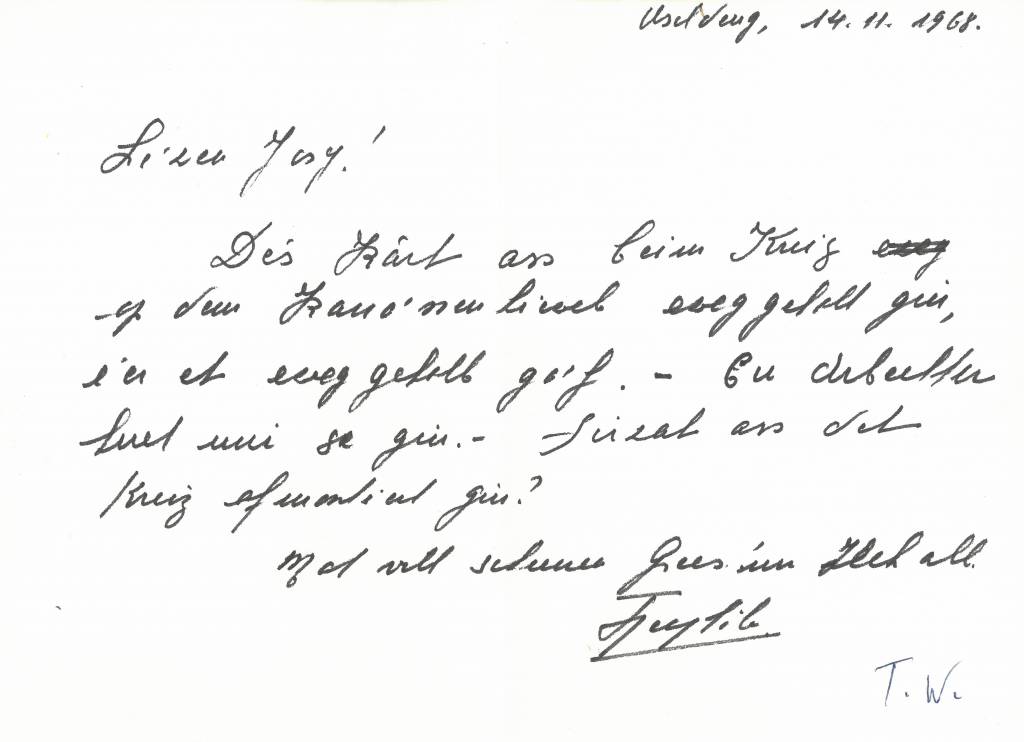 Useldeng, 14.11.1968.
Léiwen Josy!
Dés Kârt ass beim Kreiz
op dem eweggeholl gin,
éer et eweggeholl góf. - En Arbechter
huet mir se gin. - ass dat
Kreiz ofmontiert gin?
Mat vill schéinen Gréiss un Iech all.
T. W.